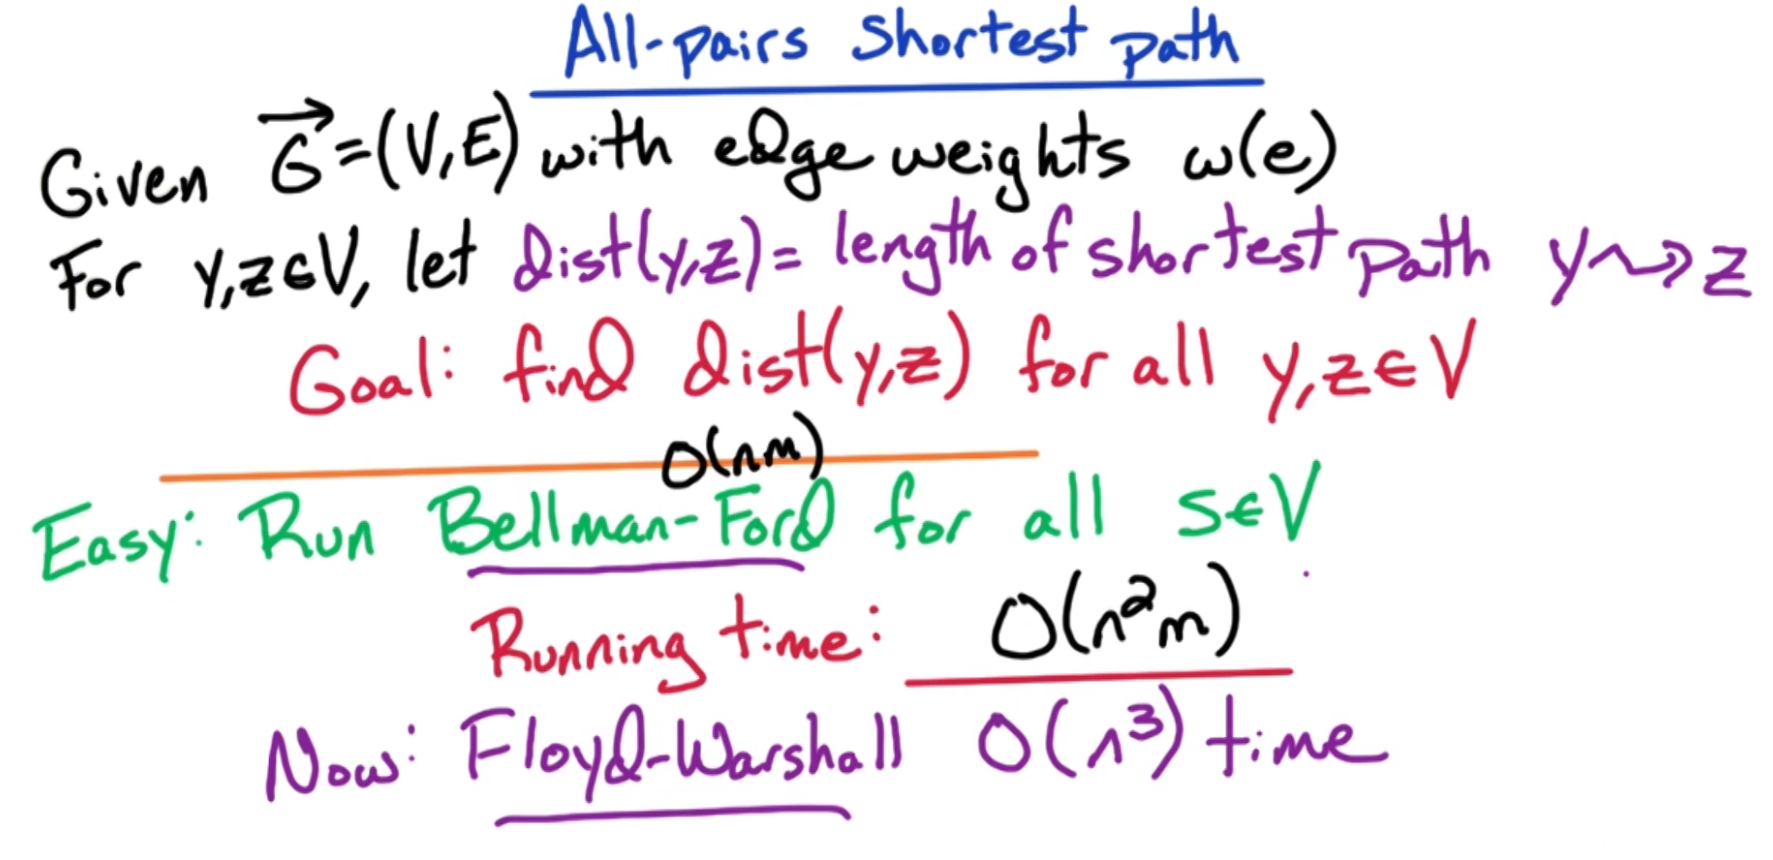 All-pairs shortest path
Given G⃗=(V,E) with edge weights w(e)
For y,z∈V, let dist(y,z)= length of shortest path y⇝z
Goal: find dist(y,z) for all y,z∈V
O(nm)
Easy: Run Bellman-Ford for all s∈V
Running time: O(n²m)
Now: Floyd-Warshall O(n³) time